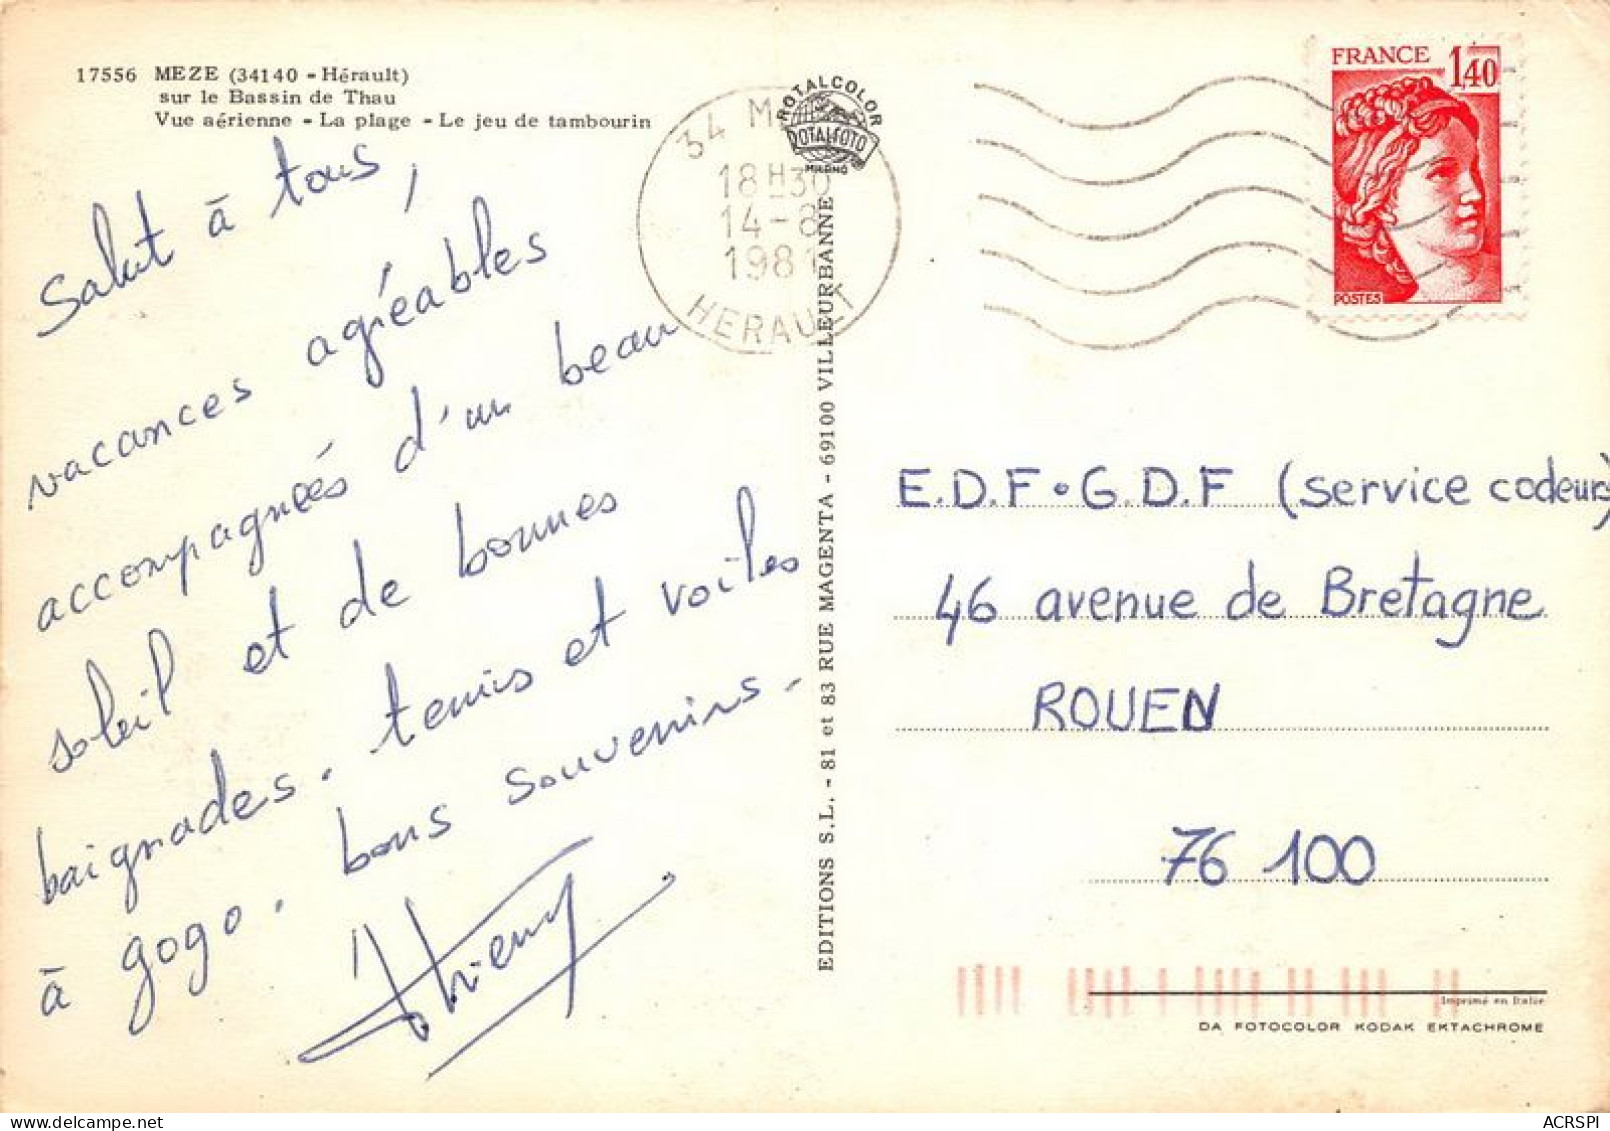 17556 MEZE (34140 - Hérault)
sur le Bassin de Thau
Vue aérienne - La plage - Le jeu de tambourin
Salut à tous,
vacances agréables
accompagnées d'un beau
soleil et de bonnes
baignades. tennis et voiles
à gogo. bons souvenirs.
Thierry
ROTALCOLOR
ROTALFOTO
MILANO
34 M
18H30
14-8
1981
HERAULT
EDITIONS S.L. - 81 et 83 RUE MAGENTA - 69100 VILLEURBANNE
FRANCE 1,40
POSTES
E.D.F. G.D.F (service codeurs)
46 avenue de Bretagne
ROUEN
76 100
Imprimé en Italie
DA FOTOCOLOR KODAK EKTACHROME
ACRSPI